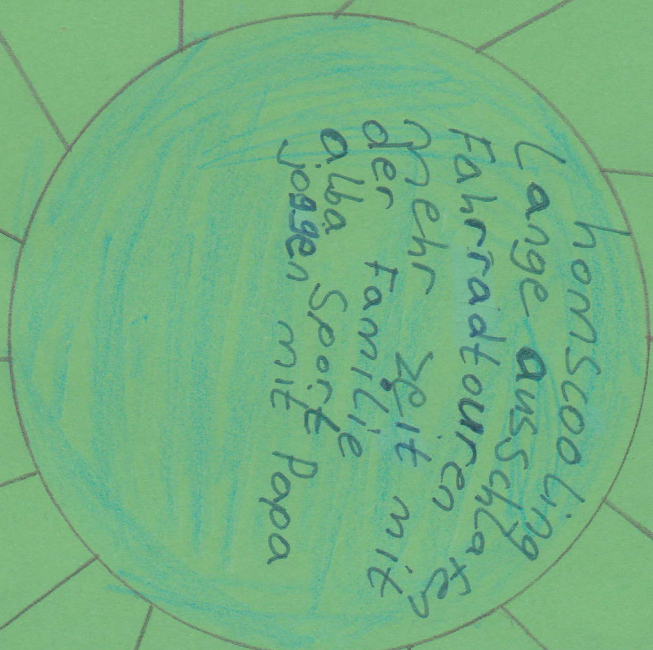 homscooling
Lange ausschlafen
Fahrradtouren
mehr zeit mit
der Familie
alba Sport
joggen mit Papa